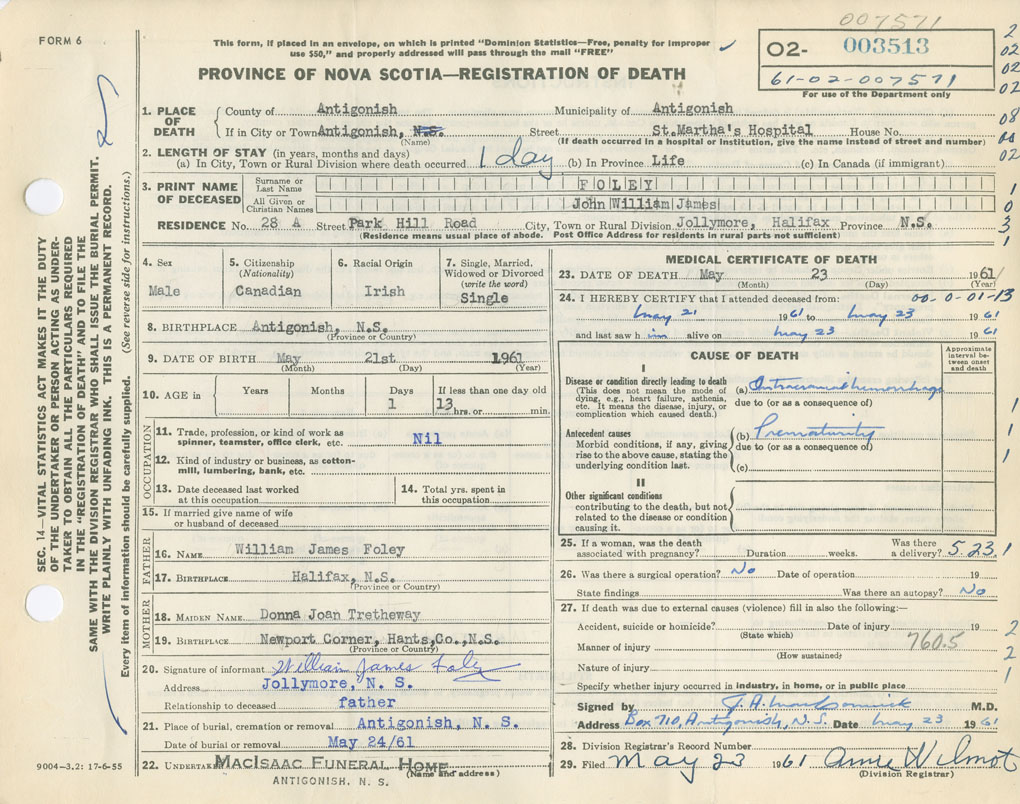 FORM 6
This form, if placed in an envelope, on which is printed "Dominion Statistics—Free, penalty for improper
use $50," and properly addressed will pass through the mail "FREE"
007571
O2- 003513
61-02-007571
For use of the Department only
PROVINCE OF NOVA SCOTIA—REGISTRATION OF DEATH
1. PLACE OF DEATH
County of Antigonish Municipality of Antigonish
If in City or Town Antigonish, N.S. Street St.Martha's Hospital House No.
(Name) (If death occurred in a hospital or institution, give the name instead of street and number)
2. LENGTH OF STAY (in years, months and days)
(a) In City, Town or Rural Division where death occurred 1 day (b) In Province Life (c) In Canada (if immigrant)
3. PRINT NAME OF DECEASED
Surname or Last Name FOLEY
All Given or Christian Names John William James
RESIDENCE No. 28 A Street Park Hill Road City, Town or Rural Division Jollymore, Halifax Province N.S.
(Residence means usual place of abode. Post Office Address for residents in rural parts not sufficient)
4. Sex
Male
5. Citizenship
(Nationality)
Canadian
6. Racial Origin
Irish
7. Single, Married,
Widowed or Divorced
(write the word)
Single
8. BIRTHPLACE Antigonish, N.S.
(Province or Country)
9. DATE OF BIRTH May 21st. 1961
(Month) (Day) (Year)
10. AGE in
Years Months Days If less than one day old
1 13 hrs. or min.
OCCUPATION
11. Trade, profession, or kind of work as
spinner, teamster, office clerk, etc. Nil
12. Kind of industry or business, as cotton-
mill, lumbering, bank, etc.
13. Date deceased last worked
at this occupation
14. Total yrs. spent in
this occupation
15. If married give name of wife
or husband of deceased
FATHER
16. NAME William James Foley
17. BIRTHPLACE Halifax, N.S.
(Province or Country)
MOTHER
18. MAIDEN NAME Donna Joan Tretheway
19. BIRTHPLACE Newport Corner, Hants,Co.,N.S.
(Province or Country)
20. Signature of informant William James Foley
Address Jollymore, N. S.
Relationship to deceased father
21. Place of burial, cremation or removal Antigonish, N. S.
Date of burial or removal May 24/61
22. UNDERTAKER MACISAAC FUNERAL HOME
(Name and address)
ANTIGONISH, N. S.
9004-3.2: 17-6-55
MEDICAL CERTIFICATE OF DEATH
23. DATE OF DEATH May 23 1961
(Month) (Day) (Year)
24. I HEREBY CERTIFY that I attended deceased from: 00-0-01-13
May 21 1961 to May 23 1961
and last saw him alive on May 23 1961
CAUSE OF DEATH
Approximate
interval be-
tween onset
and death
I
Disease or condition directly leading to death
(This does not mean the mode of
dying, e.g., heart failure, asthenia,
etc. It means the disease, injury, or
complication which caused death.)
(a) Intracranial hemorrhage
due to (or as a consequence of)
Antecedent causes
Morbid conditions, if any, giving
rise to the above cause, stating the
underlying condition last.
(b) Prematurity
due to (or as a consequence of)
(c)
II
Other significant conditions
contributing to the death, but not
related to the disease or condition
causing it.
25. If a woman, was the death
associated with pregnancy? Duration weeks. Was there
a delivery? 5.23
26. Was there a surgical operation? No Date of operation 19
State findings Was there an autopsy? No
27. If death was due to external causes (violence) fill in also the following:—
Accident, suicide or homicide? Date of injury 19
(State which)
Manner of injury 760.5
(How sustained)
Nature of injury
Specify whether injury occurred in industry, in home, or in public place
Signed by M.D.
Address Box 710, Antigonish, N.S. Date May 23 1961
28. Division Registrar's Record Number
29. Filed May 23 1961 Anne Wilmot
(Division Registrar)
SEC. 14—VITAL STATISTICS ACT MAKES IT THE DUTY
OF THE UNDERTAKER OR PERSON ACTING AS UNDER-
TAKER TO OBTAIN ALL THE PARTICULARS REQUIRED
IN THE "REGISTRATION OF DEATH" AND TO FILE THE
SAME WITH THE DIVISION REGISTRAR WHO SHALL ISSUE THE BURIAL PERMIT.
WRITE PLAINLY WITH UNFADING INK. THIS IS A PERMANENT RECORD.
Every item of information should be carefully supplied. (See reverse side for instructions.)
2
02
02
02
08
02
1
0
3
1
1
1
1
1
2
2
1